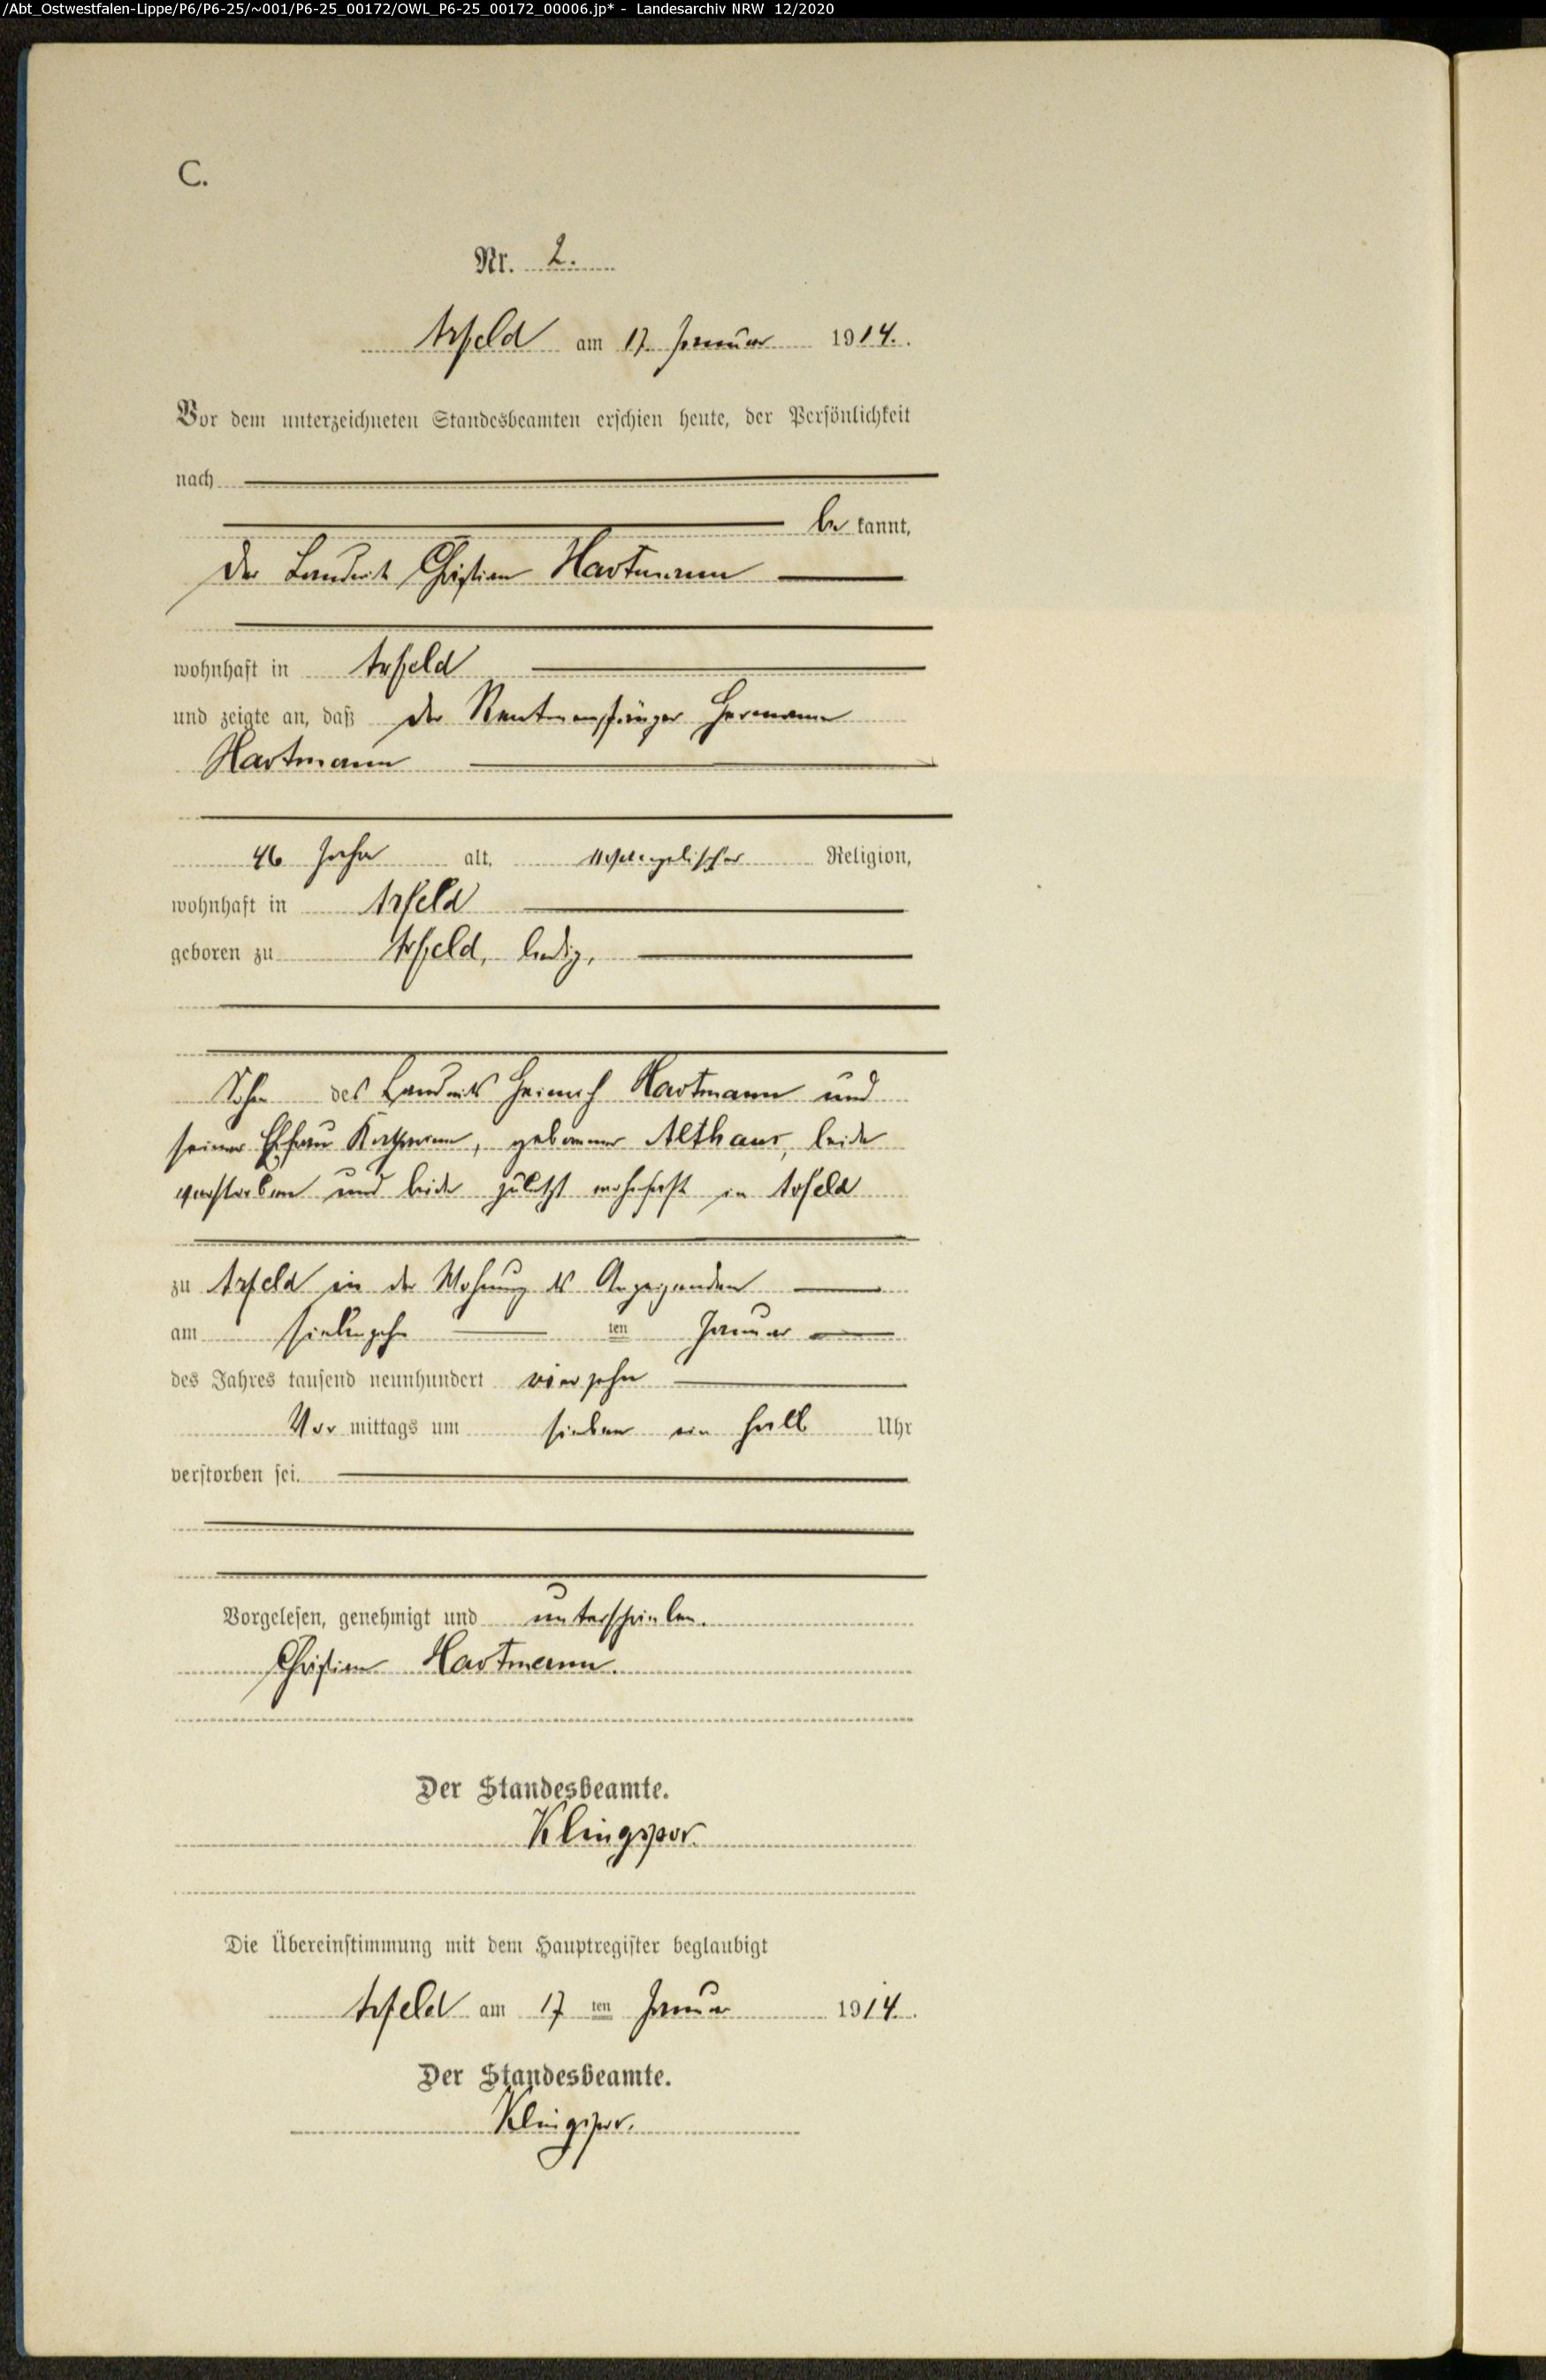 /Abt_Ostwestfalen-Lippe/P6/P6-25/~001/P6-25_00172/OWL_P6-25_00172_00006.jp* - Landesarchiv NRW 12/2020
C.
Nr. 2.
Arfeld am 17. Januar 1914.
Vor dem unterzeichneten Standesbeamten erschien heute, der Persönlichkeit
nach
be kannt,
der Landwirt Christian Hartmann
wohnhaft in Arfeld
und zeigte an, daß der Rentenempfänger Hermann
Hartmann
46 Jahre alt, evangelischer Religion,
wohnhaft in Arfeld
geboren zu Arfeld, ledig,
Sohn des Landwirts Heinrich Hartmann und
seiner Ehefrau Katharine, geborener Althaus, beide
verstorben und beide zuletzt wohnhaft in Arfeld
zu Arfeld in der Wohnung des Anzeigenden
am siebenzehn ten Januar
des Jahres tausend neunhundert vierzehn
Vor mittags um sieben ein halb Uhr
verstorben sei.
Vorgelesen, genehmigt und unterschrieben.
Christian Hartmann.
Der Standesbeamte.
Klingspor.
Die Übereinstimmung mit dem Hauptregister beglaubigt
Arfeld am 17 ten Januar 1914.
Der Standesbeamte.
Klingspor.